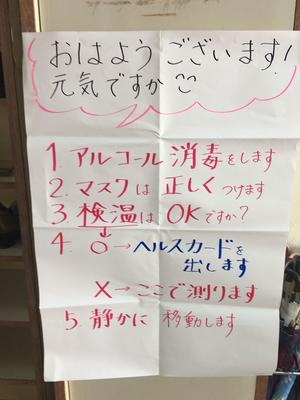 おはようございます!
元気ですか
1. アルコール消毒をします
2. マスクは正しくつけます
3. 検温はOKですか?
↓
4. ○→ヘルスカードを
出します
×→ここで測ります
5. 静かに移動します